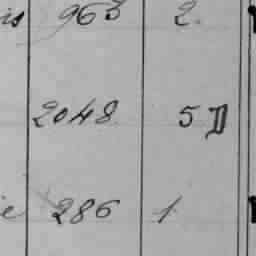 is 963 2.
2048 5 D
e 286 1